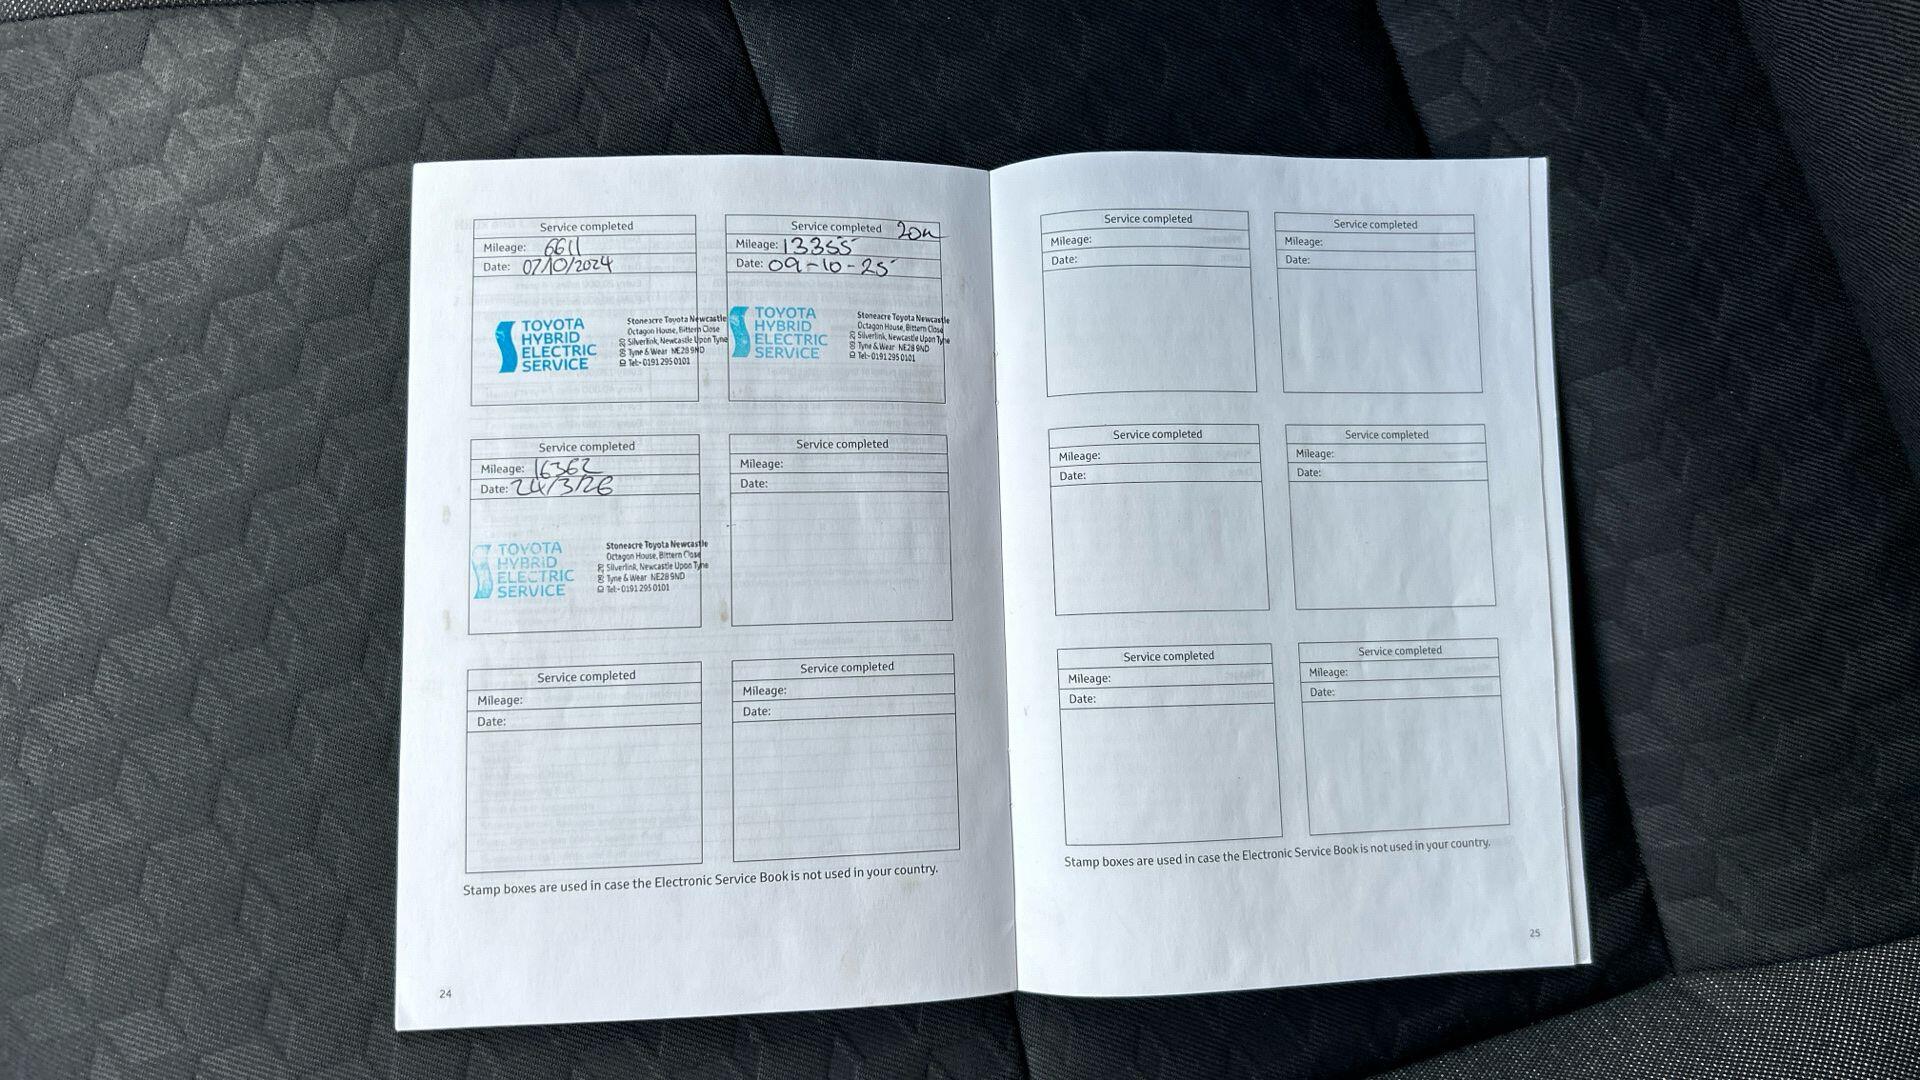 Service completed
Mileage: 6611
Date: 07/10/2024
TOYOTA
HYBRID
ELECTRIC
SERVICE
Stoneacre Toyota Newcastle
Octagon House, Bittern Close
Silverlink, Newcastle Upon Tyne
Tyne & Wear NE28 9ND
Tel:- 0191 295 0101
Service completed 20k
Mileage: 13355
Date: 09-10-25
TOYOTA
HYBRID
ELECTRIC
SERVICE
Stoneacre Toyota Newcastle
Octagon House, Bittern Close
Silverlink, Newcastle Upon Tyne
Tyne & Wear NE28 9ND
Tel:- 0191 295 0101
Service completed
Mileage: 16362
Date: 24/3/26
TOYOTA
HYBRID
ELECTRIC
SERVICE
Stoneacre Toyota Newcastle
Octagon House, Bittern Close
Silverlink, Newcastle Upon Tyne
Tyne & Wear NE28 9ND
Tel:- 0191 295 0101
Service completed
Mileage:
Date:
Service completed
Mileage:
Date:
Service completed
Mileage:
Date:
Stamp boxes are used in case the Electronic Service Book is not used in your country.
24
Service completed
Mileage:
Date:
Service completed
Mileage:
Date:
Service completed
Mileage:
Date:
Service completed
Mileage:
Date:
Service completed
Mileage:
Date:
Service completed
Mileage:
Date:
Stamp boxes are used in case the Electronic Service Book is not used in your country.
25